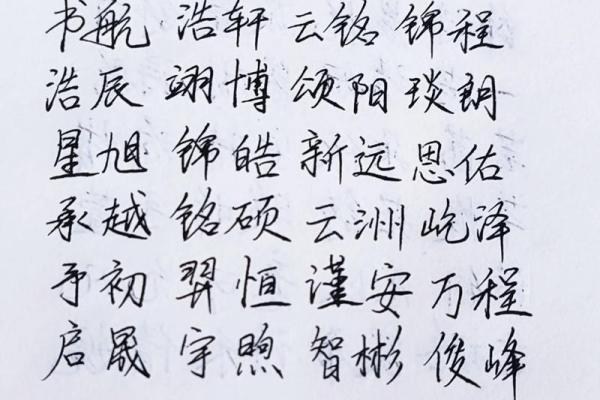 书航 浩轩 云铭 锦程
浩辰 翊博 颂阳 琰朗
星旭 锦皓 新远 恩佑
承越 铭硕 云洲 屹泽
予初 羿恒 谨安 万程
启晟 宇煦 智彬 俊峰